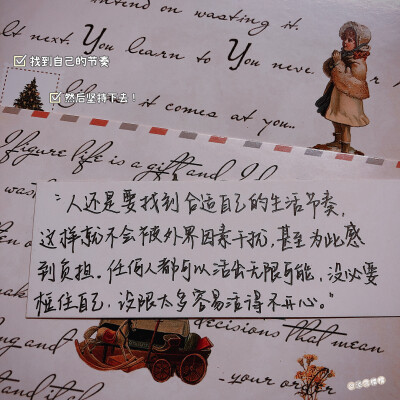 intend on wasting it.
lt next. You learn to You never
找到自己的节奏
然后坚持下去！
it comes at you..
I figure life is a gift and I
was
"人还是要找到合适自己的生活节奏，
这样就不会被外界因素干扰，甚至为此感
到负担。任何人都可以活出无限可能，没必要
框住自己，设限太多容易活得不开心。"
decisions that mean
ing and
-your order